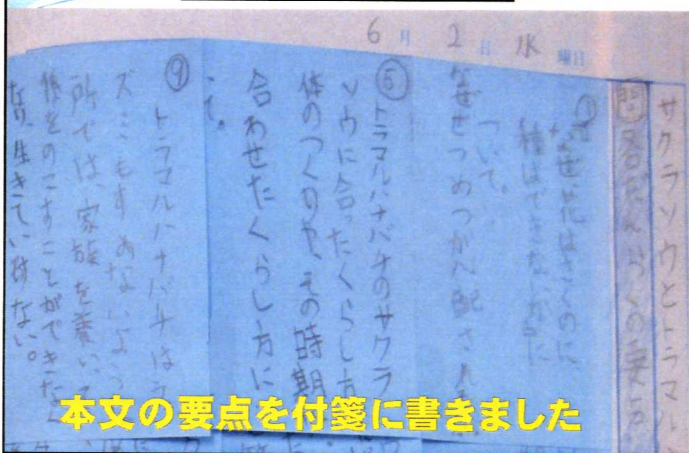 6月2日水曜日
サクラソウとトラマル
問 各だんらくの要点
① なぜ、花はさくのに、
種はできないか に
ついて。
なぜぜつめつが心配され
⑤ トラマルハナバチのサクラ
ソウに合ったくらし方
体のつくりや、その時期
合わせたくらし方に
て。
⑨ トラマルハナバチは
ズミもすめないよう
所では、家族を養い
をのこすことができなく
なり、生きていけない。
本文の要点を付箋に書きました